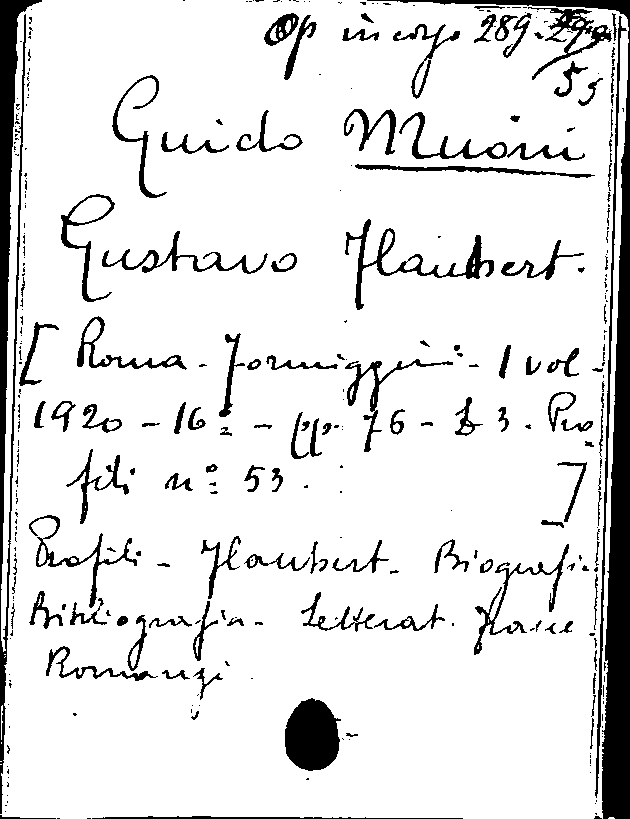 Op in corso 289.
55
Guido Muoni
Gustavo Flaubert.
[ Roma - Formiggini - 1 vol -
1920 - 16º - pp. 76 - £ 3. Pro
fili nº 53. ]
Profili - Flaubert - Biografia
Bibliografia - Letterat. franc.
Romanzi